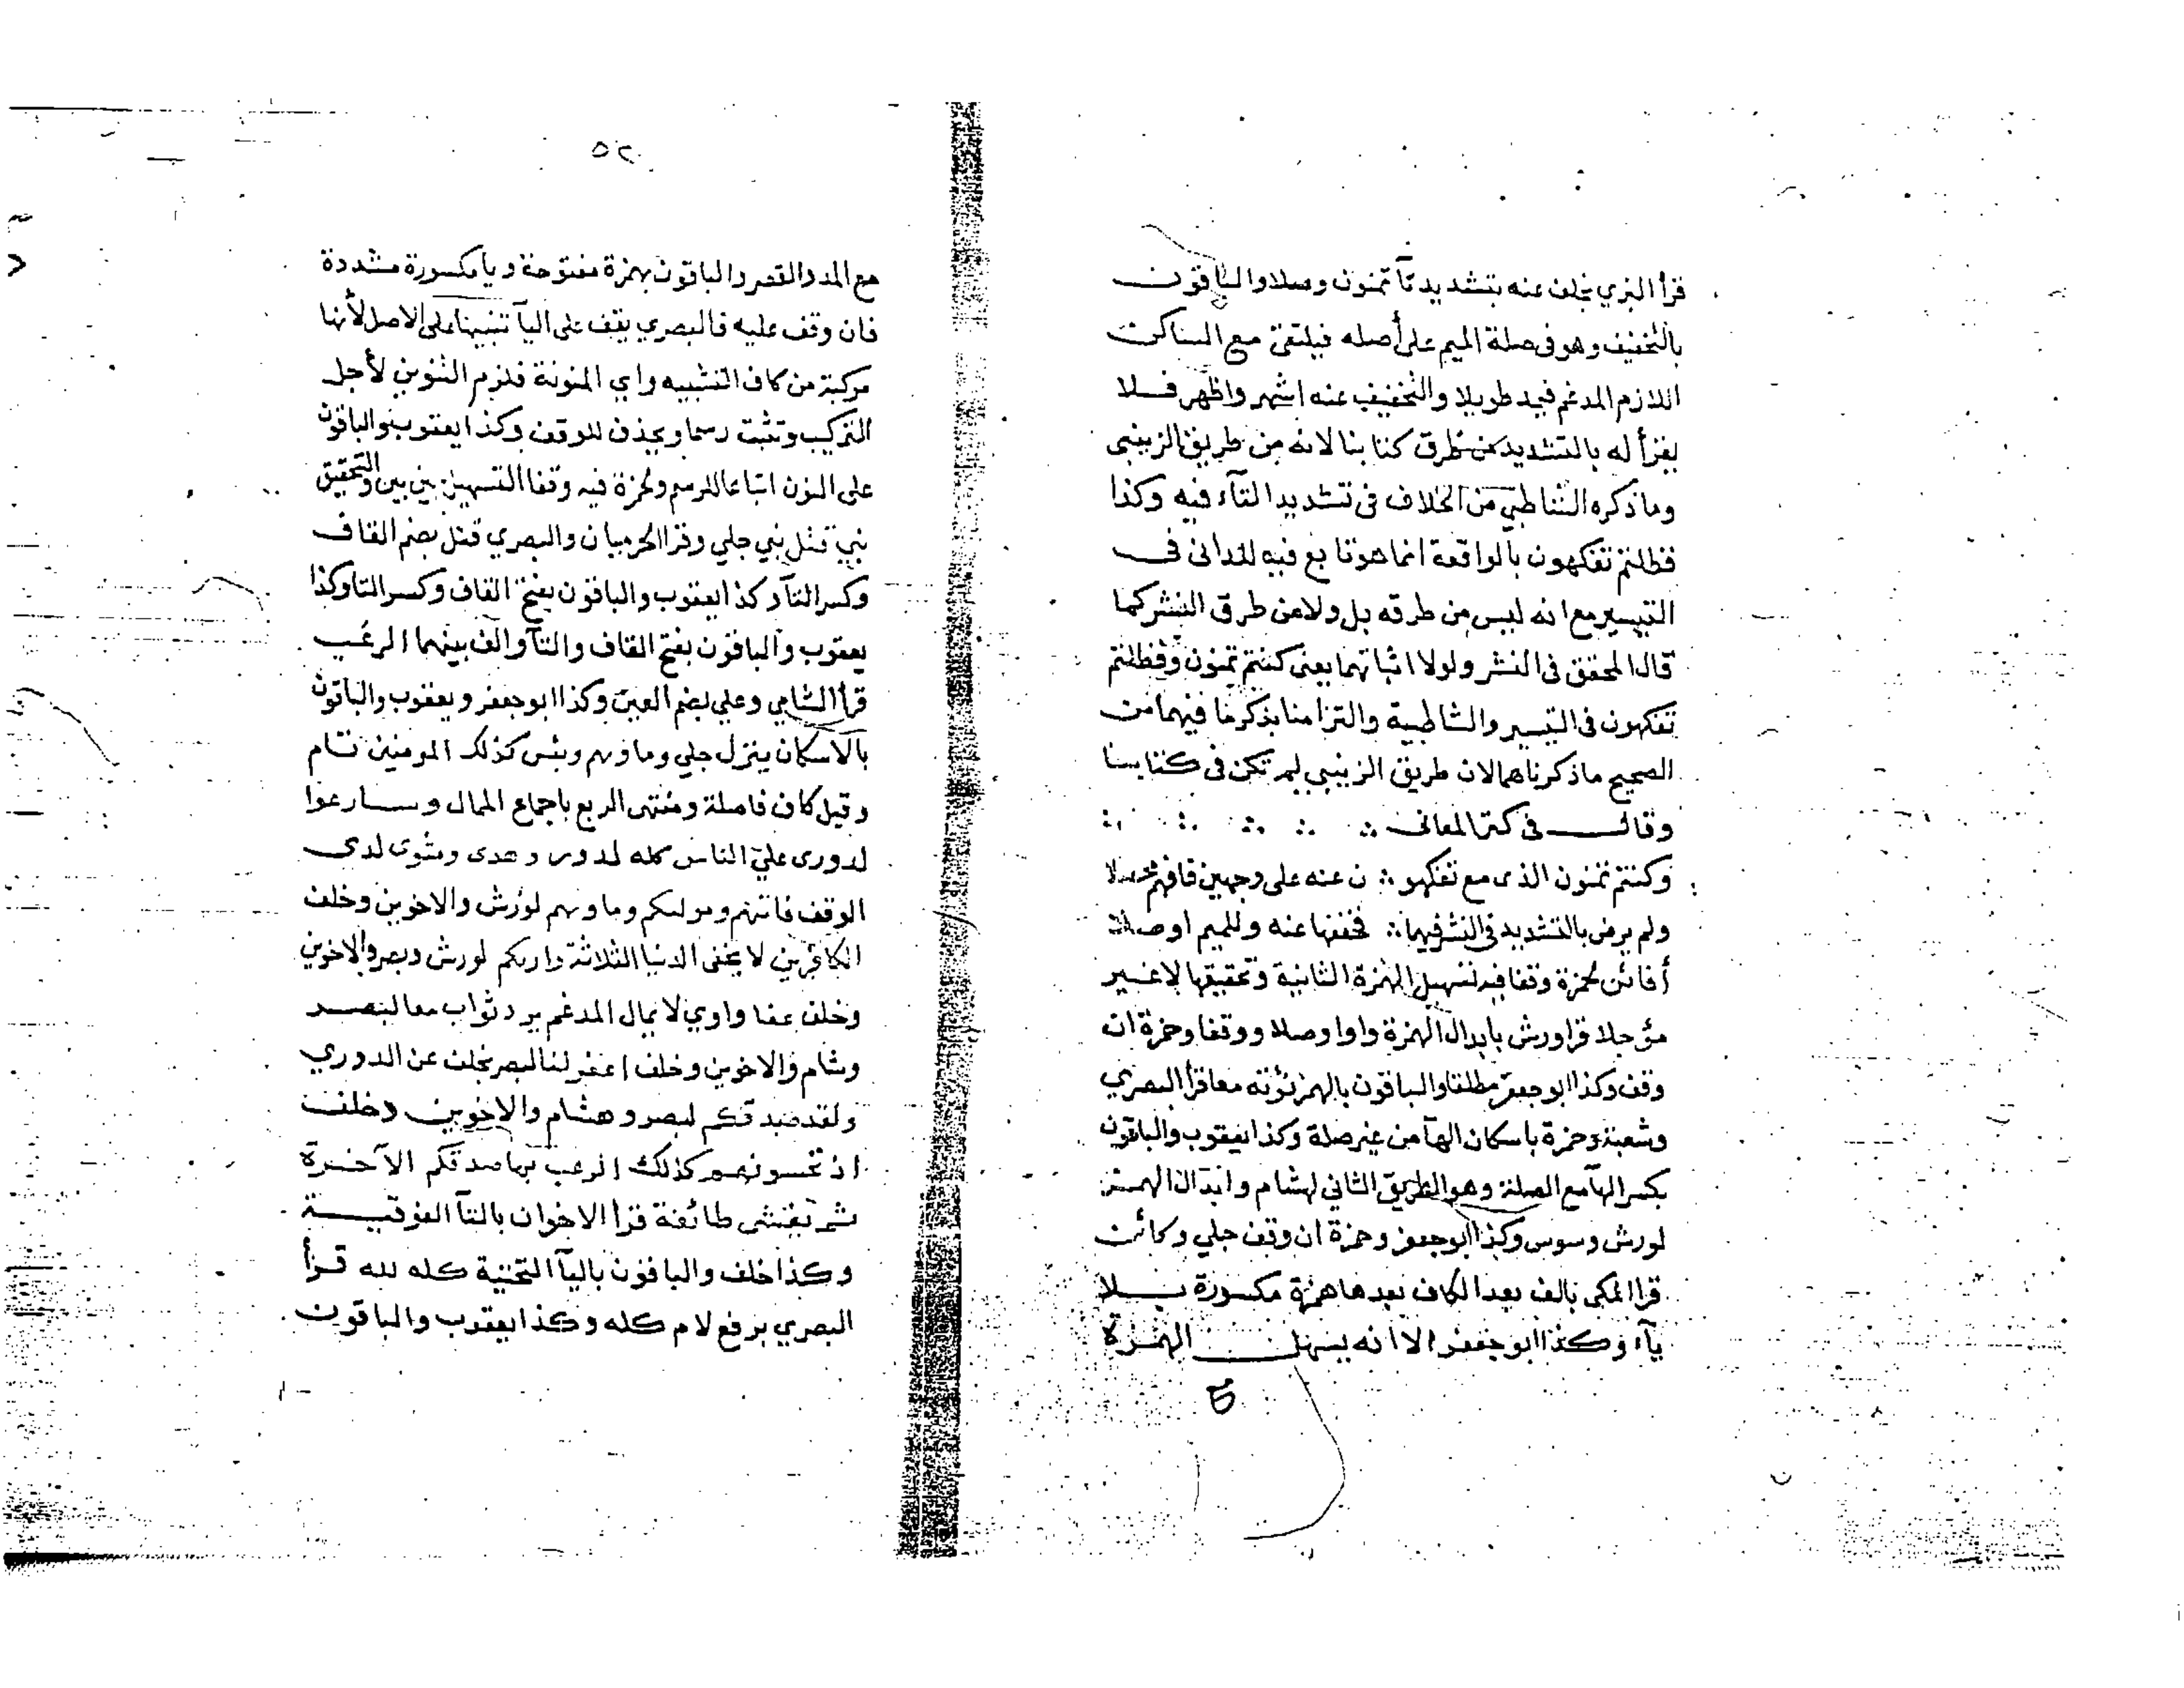 قرأ البزي بخلف عنه بتشديد تآ تمنون وصلا والباقون
بالتخفيف وهو في صلة الميم على أصله فيلتقي مع الساكن
اللازم المدغم فيمد طويلا والتخفيف عنه اشهر واظهر فلا
يقرأ له بالتشديد من طرق كتابنا لانه من طريق الزينبي
وما ذكره الشاطبي من الخلاف في تشديد التآء فيه وكذا
فظلتم تفكهون بالواقعة انما هو تابع فيه للداني في
التيسير مع انه ليس من طرقه بل ولا من طرق النشر كما
قال المحقق في النشر ولولا اثباتهما يعني كنتم تمنون وفظلتم
تفكهون في التيسير والشاطبية والتزامنا بذكر ما فيهما من
الصحيح ما ذكرناهما لان طريق الزينبي لم تكن في كتابنا
وقال في كنز المعاني ∴ ∴ ∴ ∴ ∴
وكنتم تمنون الذي مع تفكهو ∴ ن عنه على وجهين فافهم محصلا
ولم يرض بالتشديد في النشر فيهما ∴ فخففها عنه وللميم اوصلا
أفائن لحمزة وقفا فيه تسهيل الهمزة الثانية وتحقيقها لا غير
مؤجلا قرا ورش بابدال الهمزة واوا وصلا ووقفا وحمزة ان
وقف وكذا ابو جعفر مطلقا والباقون بالهمز نؤته معا قرأ البصري
وشعبة وحمزة باسكان الهآ من غير صلة وكذا يعقوب والباقون
بكسر الهآ مع الصلة وهو الطريق الثاني لهشام وابدال الهمز
لورش وسوس وكذا ابو جعفر وحمزة ان وقف جلي وكائن
قرا المكي بالف بعد الكاف بعدها همزة مكسورة بلا
يآء وكذا ابو جعفر الا انه يسهل الهمزة
٥٢
مع المد والقصر والباقون بهمزة مفتوحة ويا مكسورة مشددة
فان وقف عليه فالبصري يقف على اليآ تنبيها على الاصل لأنها
مركبة من كاف التشبيه واي المنونة فلزم التنوين لأجل
التركيب وتثبت رسما ويحذف للوقف وكذا يعقوب والباقون
على النون اتباعا للرسم ولحمزة فيه وقفا التسهيل بين بين والتحقيق
نبي قتل نبي جلي وقرا الحرميان والبصري قتل بضم القاف
وكسر التآ وكذا يعقوب والباقون بفتح القاف وكسر التا وكذا
يعقوب والباقون بفتح القاف والتآ والف بينهما الرعب
قرأ الشامي وعلي بضم العين وكذا ابو جعفر ويعقوب والباقون
بالاسكان ينزل جلي وماويهم وبئس كذلك المومنين تام
وقيل كاف فاصلة ومنتهى الربع باجماع الممال وسارعوا
لدوري علي الناس كله لدور وهدى ومثوى لدى
الوقف فاتيهم ومولىكم وماويهم لورش والاخوين وخلف
الكافرين لا يخفى الدنيا الثلاثة واريكم لورش وبصر والاخوين
وخلف عفا واوي لا يمال المدغم يرد ثواب معا لبصر
وشام والاخوين وخلف اغفر لنا لبصر بخلف عن الدوري
ولقد صدقكم لبصر وهشام والاخوين وخلف
اذ تحسونهم كذلك الرعب بما صدقكم الآخرة
ثم يغشى طائفة قرأ الاخوان بالتآ الفوقية
وكذا خلف والباقون باليآ التحتية كله لله قرأ
البصري برفع لام كله وكذا يعقوب والباقون